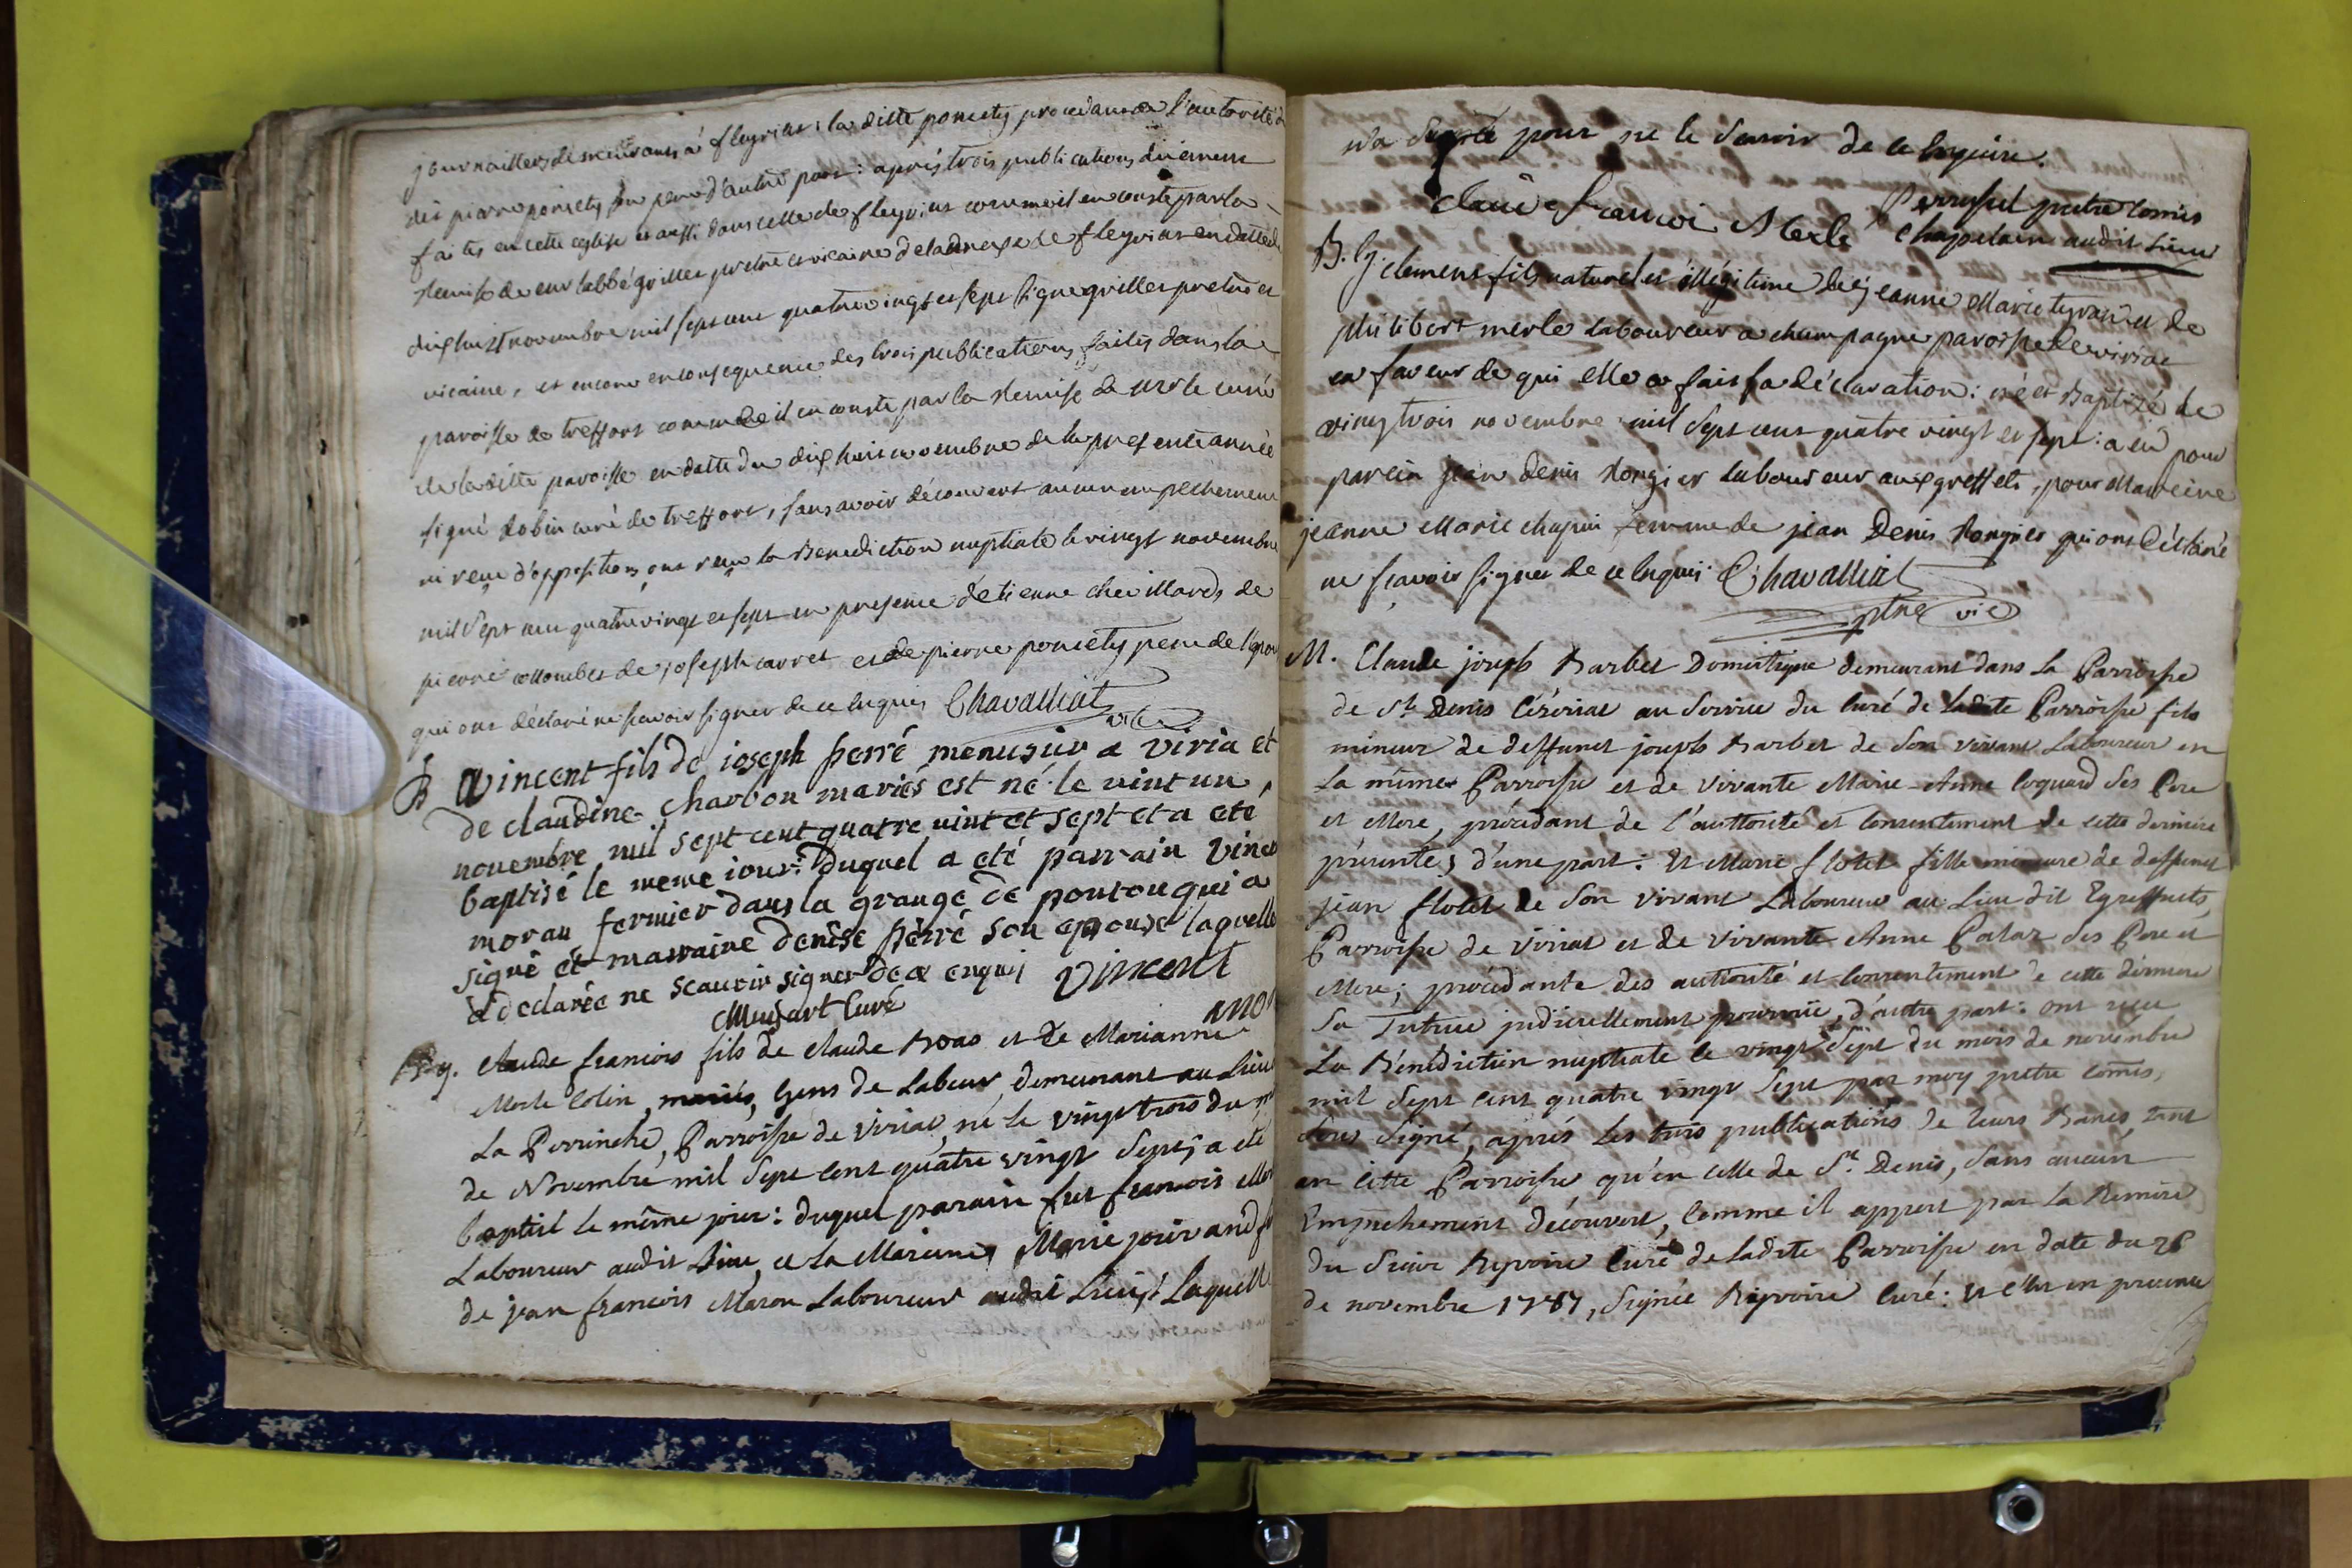 journaillers demeurants à fleyriat: la ditte poncety procedant de l'autorité
dit pierre poncety son pere d'autre part: après trois publications duement
faites en cette eglise et aussi dans celle de fleyriat comme il en conste par la
remise de mr l'abbé gviller pretre et vicaire de la de fleyriat en datte du
dix huit novembre mil sept cent quatre vingt et sept signe gviller pretre et
vicaire, et encore en consequence des trois publications faites dans la
paroisse de treffort comme il en conste par la remise de mr le curé
de laditte paroisse en datte du dix huit novembre de la presente année
signé robin curé de treffort, sans avoir découvert aucun empechement
ni reçu d'oppositions ont reçu la Benediction nuptiale le vingt novembre
mil sept cent quatre vingt et sept en presence d'etienne chevillard, de
pierre collomb et de joseph carret et de pierre poncety pere de l'epou
qui ont déclaré ne scavoir signer de ce enquis Chavalliat
vic
B vincent fils de ioseph perré menusier a viria et
de claudine charbon mariés est né le vint un
novembre mil sept cent quatre vint et sept et a eté
baptisé le meme iour: duquel a eté parrain vince
morau fermier dans la grange de poutou qui a
signé et marraine denise perré son epouse laquelle
a declarée ne scauoir signer de ce enqui vincent
mor
curé
B.g. Claude francois fils de Claude Boas et de Marianne
Merle Colin, mariés, Gens de Labeur demeurant au Lieu
La Perrinche, Parroisse de viriat, né le vingt trois du
de Novembre mil Sept cent quatre vingt Sept; a eté
baptisé le même jour: duquel parain fut francois Mer
Laboureur audit Lieu, et la Maraine, Marie joivand f
de jean francois Maron Laboureur audit Lieu; Laquelle
n'a signé pour ne le Savoir de ce enquise.
Claude francoi Merle Perruset pretre comis
Chapelain audit Lieu
B. g. clement fils naturel et illégitime de jeanne Marie teyran et de
philibert merle laboureur a champagne paroisse de viriat
en faveur de qui elle a fait sa déclaration: né et Baptizé le
vingt trois novembre mil Sept cent quatre vingt et sept: a eu pour
parein jean denis Rongier laboureur aux greffets, pour Mareine
jeanne Marie chapuis femme de jean Denis Rongier qui ont déclaré
ne scavoir signer de ce enquis Chavalliat
ptre vic
M. Claude joseph Barbet Domestique demeurant dans la Parroisse
de St Denis Césériat au Service du Curé de ladite Parroisse fils
mineur de deffunct joseph Barbet de Son vivant Laboureur en
La même Parroisse et de vivante Marie-Anne Coquard ses Pere
et Mere, procédant de l'authorité et Consentement de cette derniere
présente, d'une part: Et Marie flotet fille mineure de deffunct
jean flotet de Son vivant Laboureur au Lieu dit Egreffets,
Parroisse de viriat et de vivante Anne Palar ses Pere et
Mere; procédante des authorité et Consentement de cette derniere
Sa Tutrice judiciellement pourvüe, d'autre part: ont reçu
La Bénédiction nuptiale le vingt Sept du mois de novembre
mil Sept cent quatre vingt Sept par moy pretre comis,
Sous Signé, après les trois publications de leurs Bancs, tant
en cette Parroisse qu'en celle de St. Denis, Sans aucun
Empechement découvert, Comme il appert par la Remise
du Sieur Reyvoire Curé de Ladite Parroisse en date du 26
de novembre 1787, Signée Reyvoire Curé: Et c'est en presence